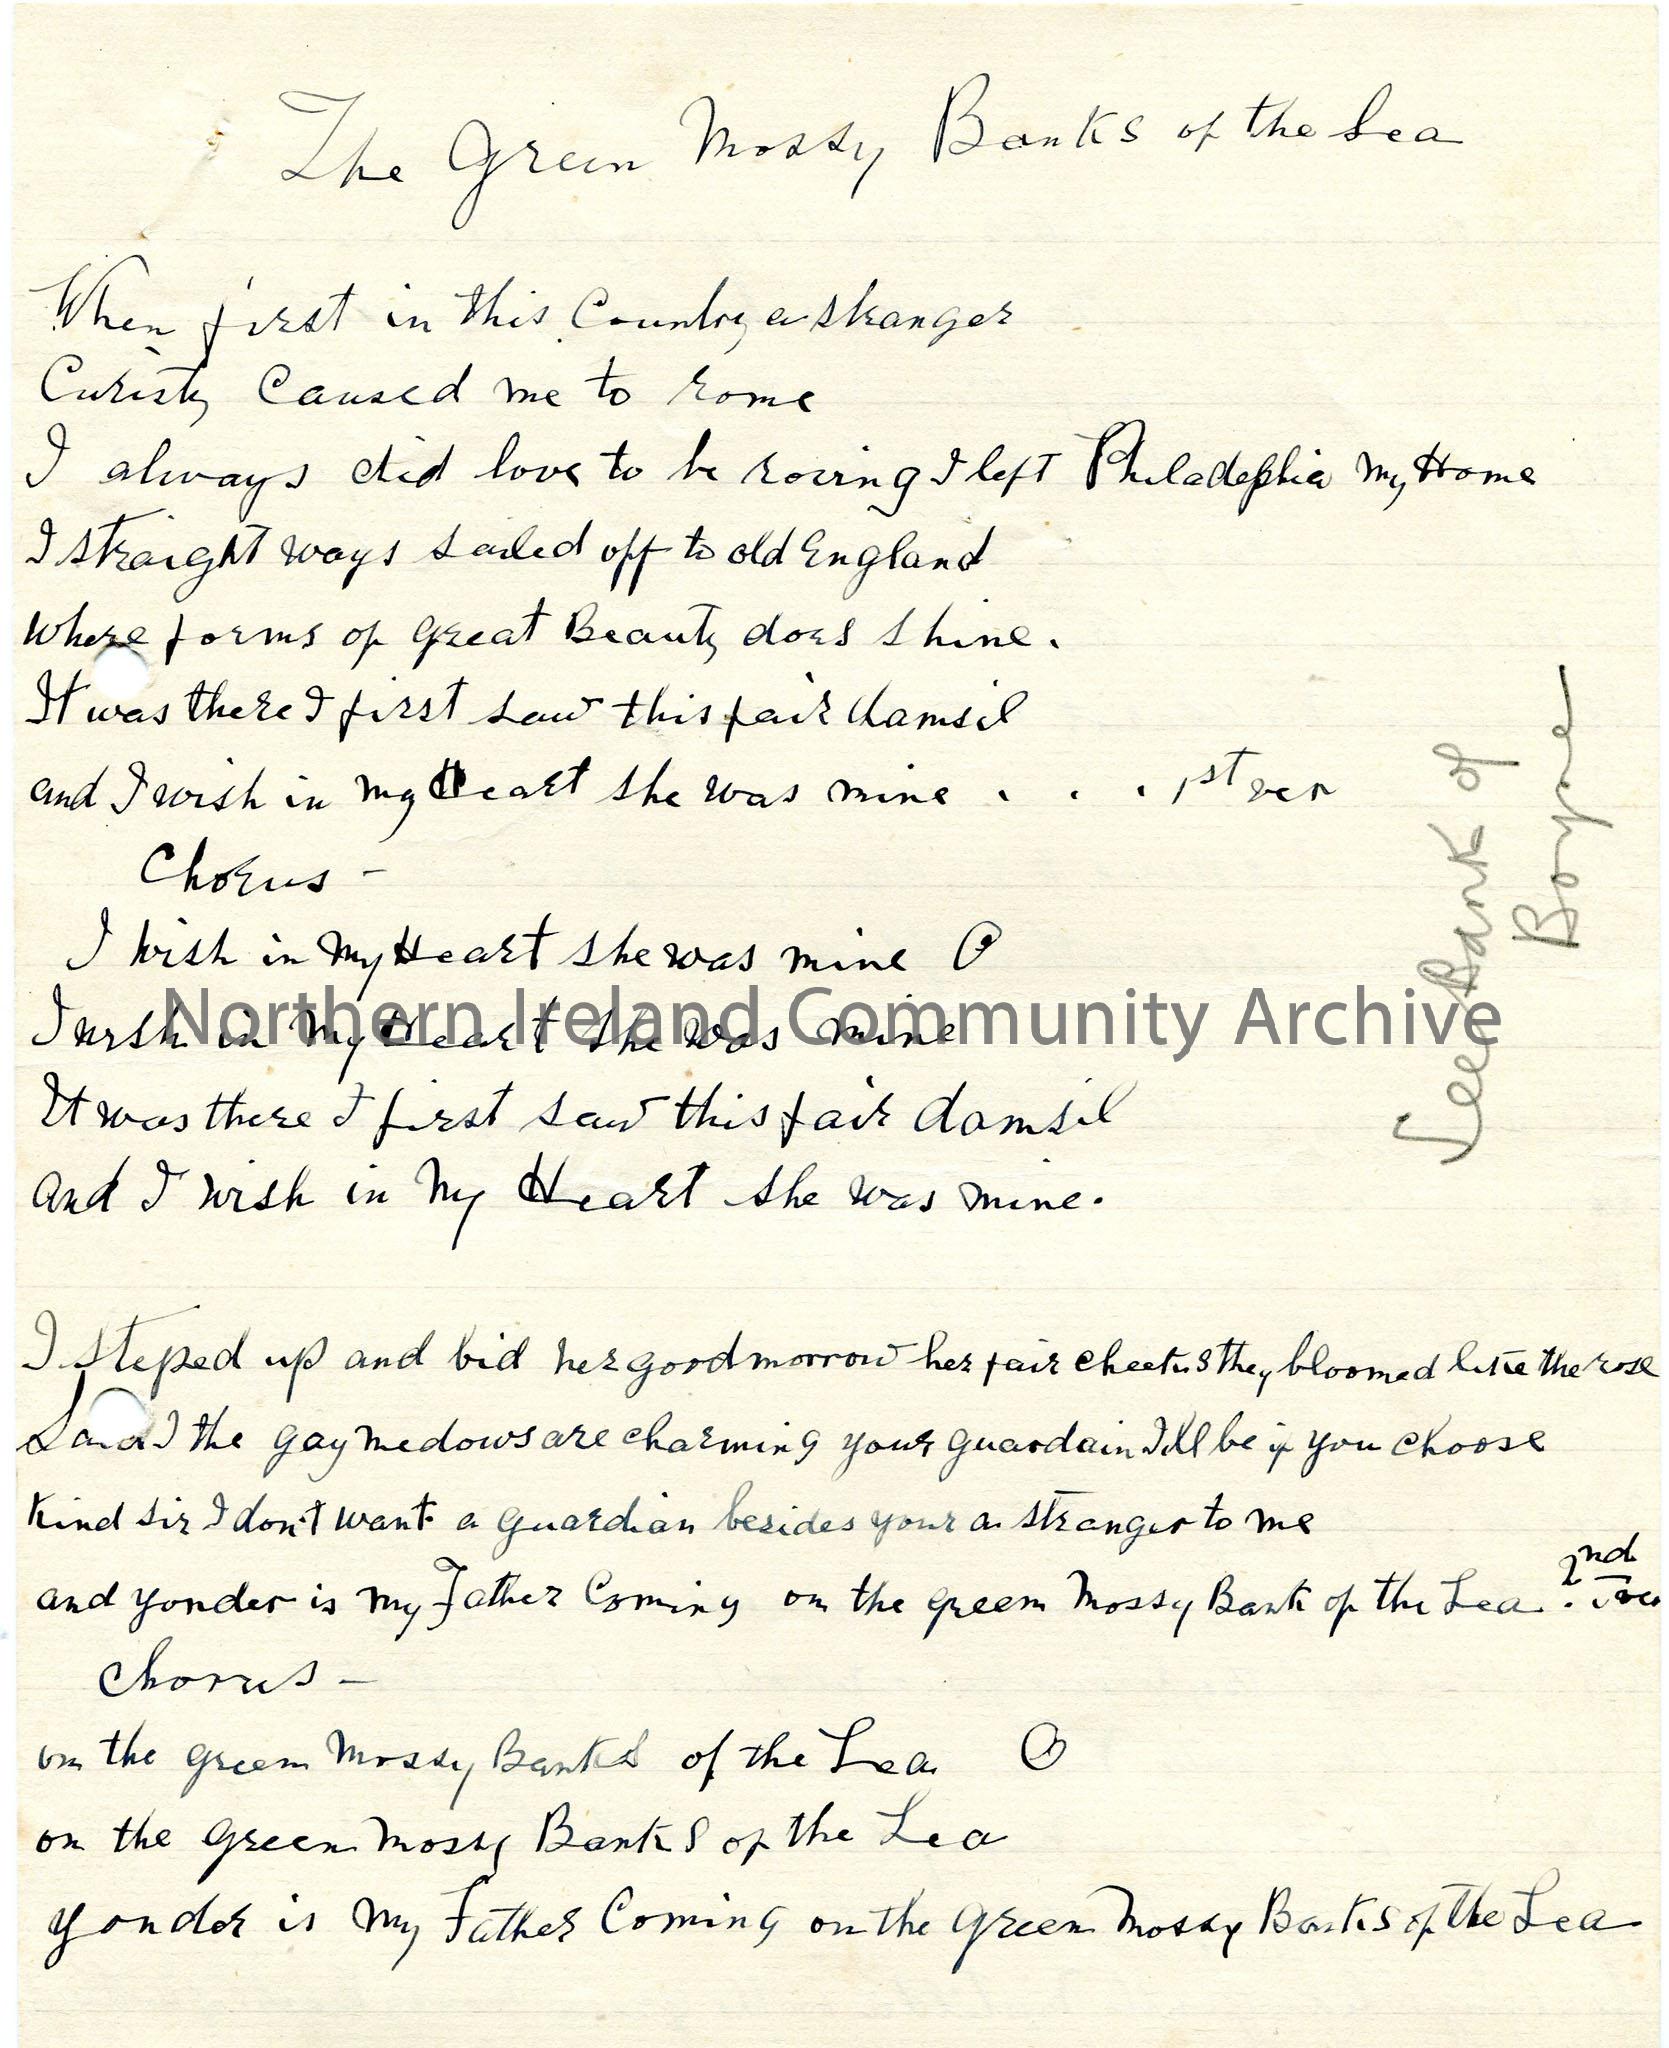 The Green Mossy Banks of the Lea
When first in this Country a stranger
Curisty Caused me to rome
I always did love to be roving I left Philadephia My Home
I straight ways sailed off to old England
Where forms of great Beauty does shine.
It was there I first saw this fair damsil
and I wish in my Heart she was mine . . . 1st ver
Chorus -
I wish in My Heart she was mine O
I wish in My Heart she was mine
It was there I first saw this fair damsil
and I wish in My Heart she was mine.
I steped up and bid her good morrow her fair cheeks they bloomed like the rose
Said I the gay medows are charming your guardain I'll be if you choose
Kind sir I don't want a guardian besides your a stranger to me
and yonder is my Father Coming on the green Mossy Bank of the Lea . 2nd ver
Chorus -
on the green Mossy Banks of the Lea O
on the green Mossy Banks of the Lea
yonder is My Father Coming on the green Mossy Banks of the Lea
See Bank of
Boyne
Northern Ireland Community Archive